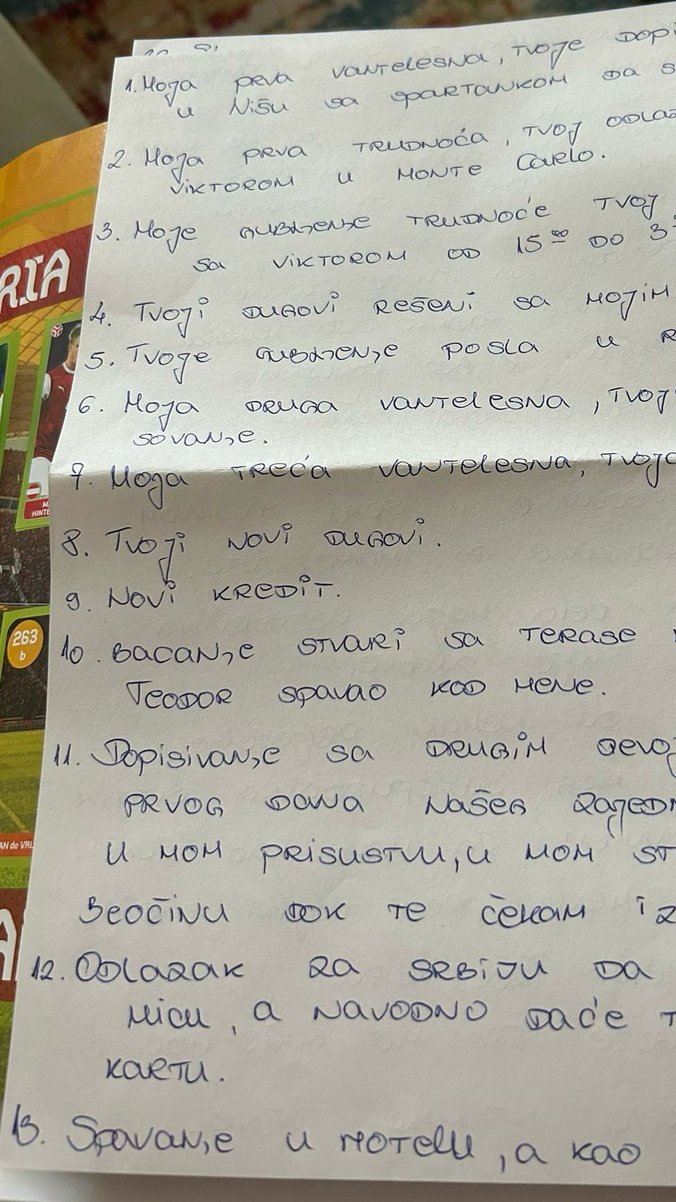 1. Moja prva vantelesna, tvoje dopi
u Nišu sa spartankom da s
2. Moja prva trudnoća, tvoj odla
Viktorom u Monte Carlo.
3. Moje gubljenje trudnoće tvoj
sa Viktorom od 15 00 do 3
4. Tvoji dugovi rešeni sa mojim
5. Tvoje gubljenje posla u
6. Moja druga vantelesna, tvoj
sovanje.
7. Moja treća vantelesna, tvoj
8. Tvoji novi dugovi.
9. Novi kredit.
10. Bacanje stvari sa terase
Teodor spavao kod mene.
11. Dopisivanje sa drugim devoj
prvog dana našeg zajedn
u mom prisustvu, u mom st
Beočinu dok te čekam iz
12. Odlazak za Srbiju da
Micu, a navodno daće t
kartu.
13. Spavanje u motelu, a kao
RIA
263
b
AN de VRI
A